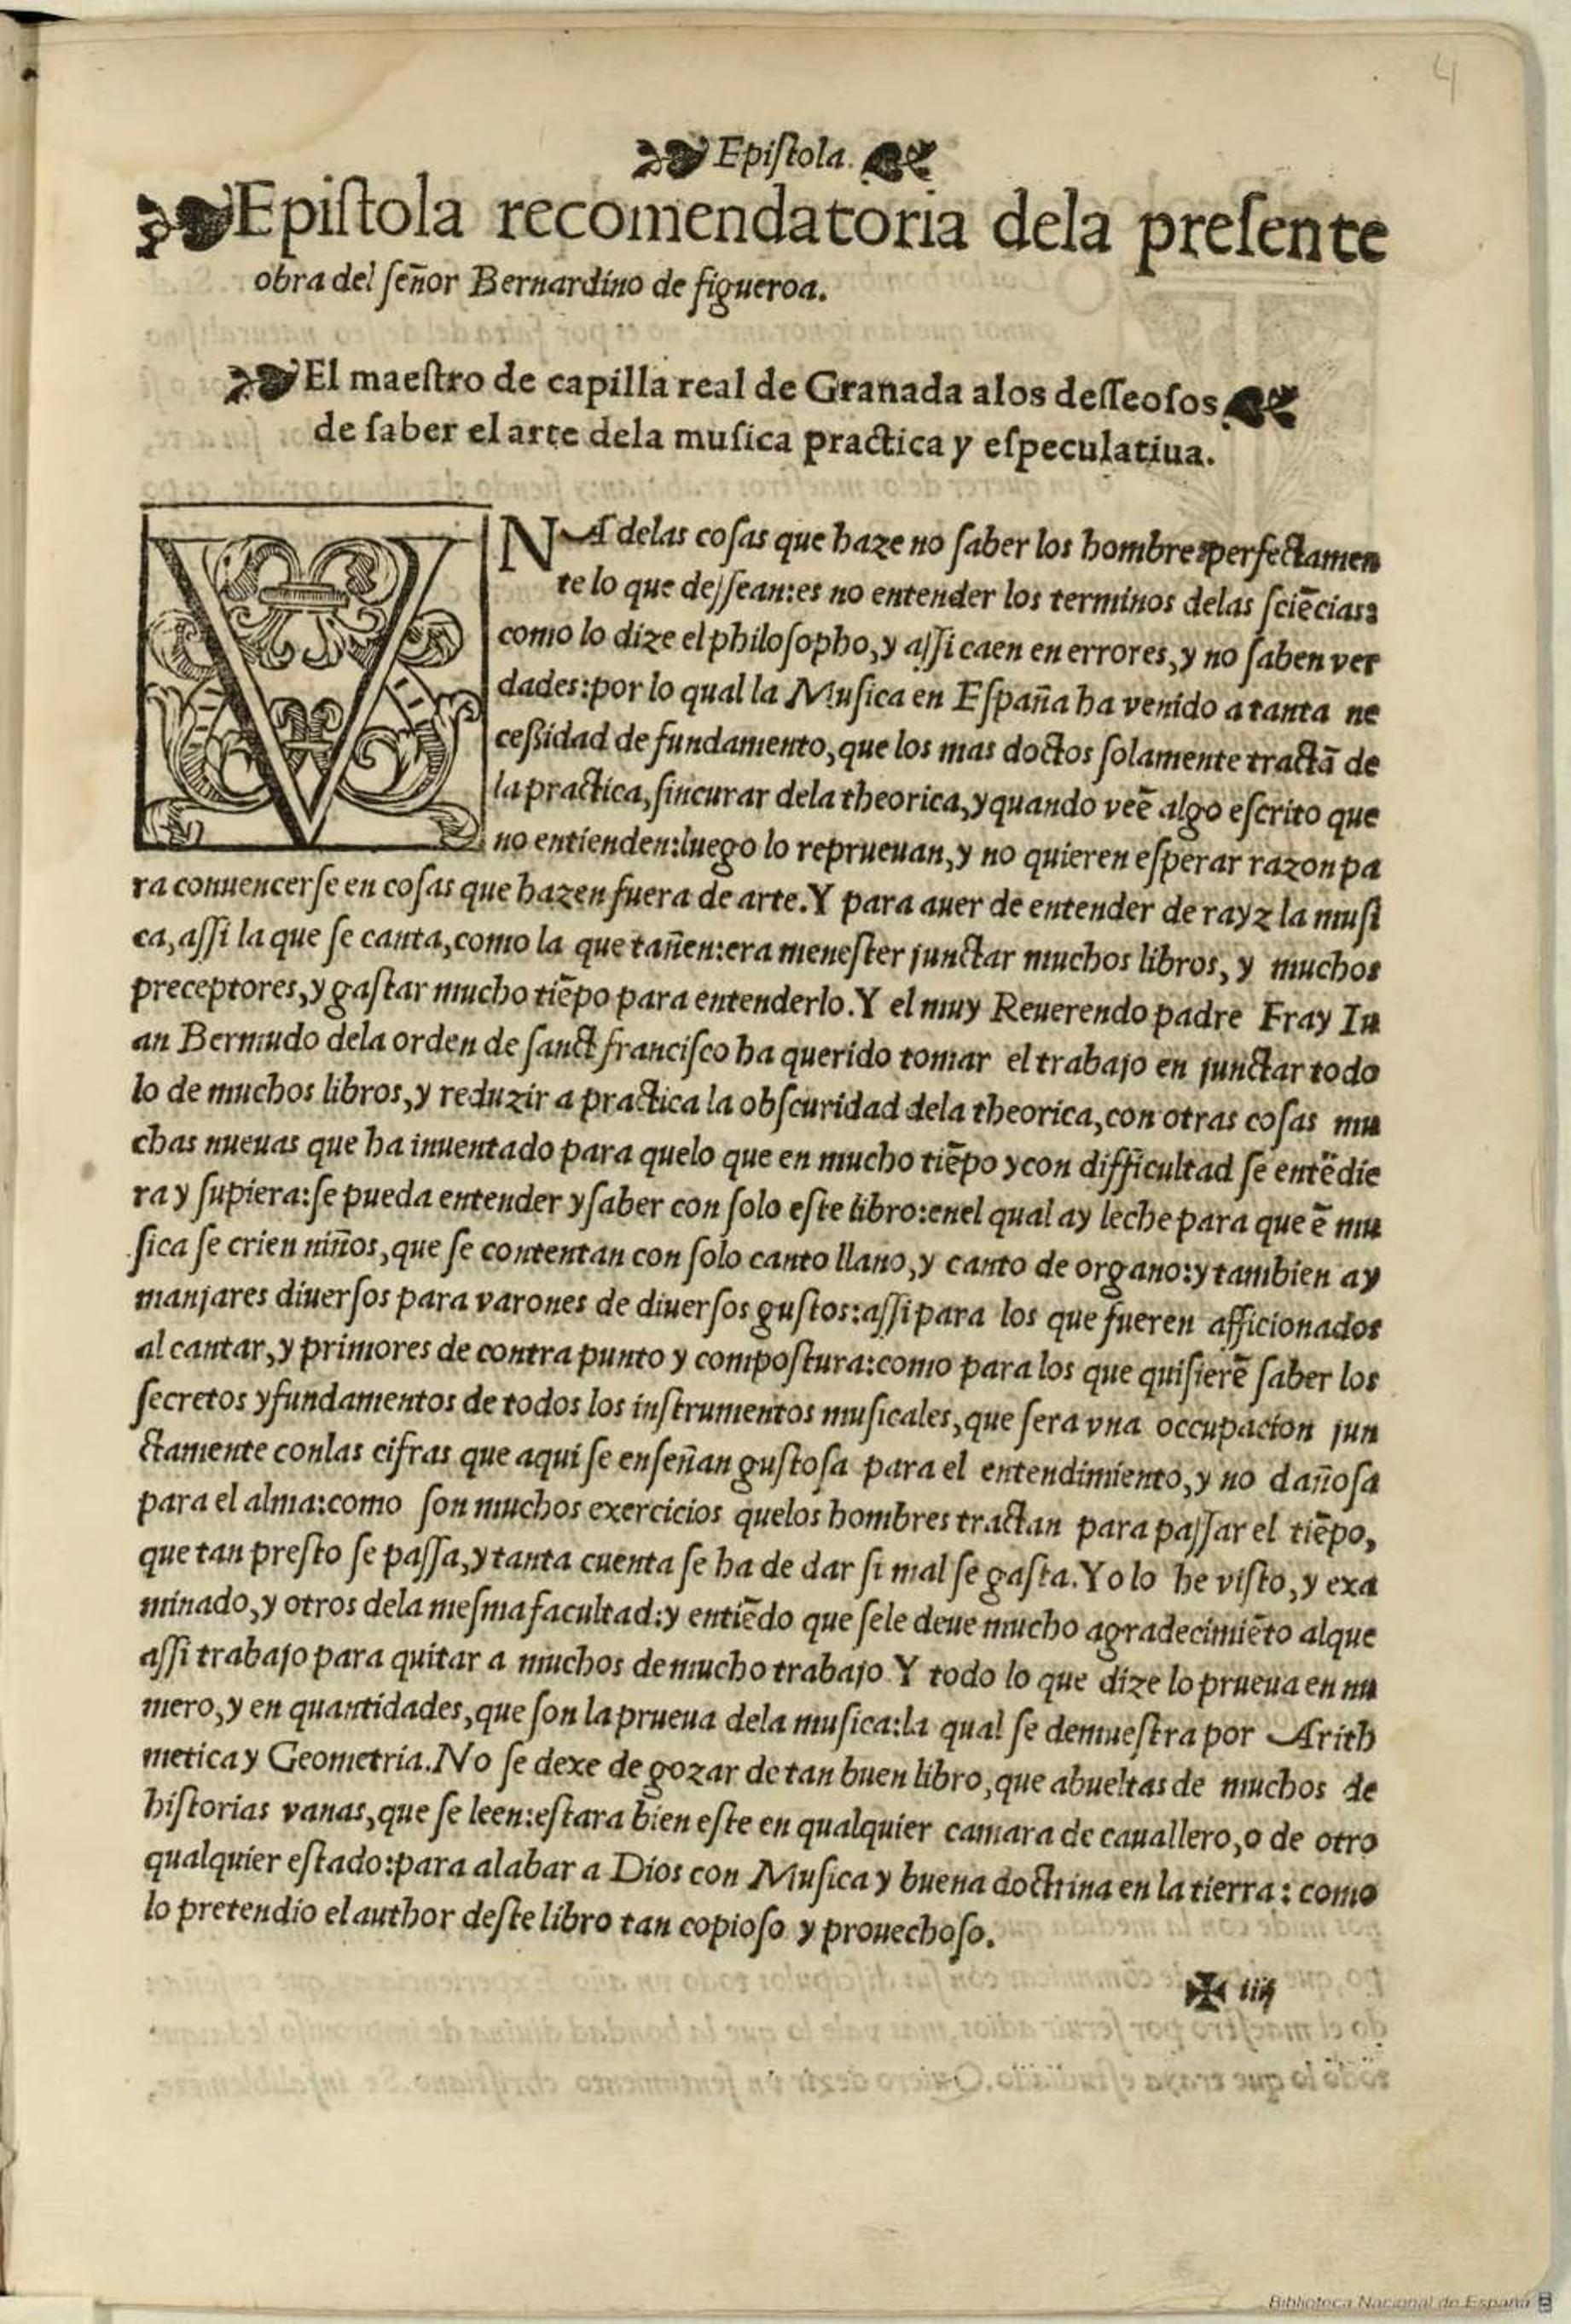 4
Epiſtola.
Epiſtola recomendatoria dela preſente
obra del ſeñor Bernardino de figueroa.
El maeſtro de capilla real de Granada alos deſſeoſos
de ſaber el arte dela muſica practica y eſpeculatiua.
VNA delas coſas que haze no ſaber los hombres perfectamen
te lo que deſſean:es no entender los terminos delas ſciẽcias:
como lo dize el philoſopho, y aſſi caen en errores, y no ſaben ver
dades:por lo qual la Muſica en Eſpaña ha venido a tanta ne
ceßidad de fundamento, que los mas doctos ſolamente tractã de
la practica, ſin curar dela theorica, y quando veẽ algo eſcrito que
no entienden:luego lo reprueuan, y no quieren eſperar razon pa
ra conuencerſe en coſas que hazen fuera de arte. Y para auer de entender de rayz la muſi
ca, aſſi la que ſe canta, como la que tañen:era meneſter junctar muchos libros, y muchos
preceptores, y gaſtar mucho tiẽpo para entenderlo. Y el muy Reuerendo padre Fray Iu
an Bermudo dela orden de ſanct franciſco ha querido tomar el trabajo en junctar todo
lo de muchos libros, y reduzir a practica la obſcuridad dela theorica, con otras coſas mu
chas nueuas que ha inuentado para quelo que en mucho tiẽpo y con difficultad ſe entẽdie
ra y ſupiera:ſe pueda entender y ſaber con ſolo eſte libro:enel qual ay leche para que ẽ mu
ſica ſe crien niños, que ſe contentan con ſolo canto llano, y canto de organo:y tambien ay
manjares diuerſos para varones de diuerſos guſtos:aſſi para los que fueren afficionados
al cantar, y primores de contra punto y compoſtura:como para los que quiſierẽ ſaber los
ſecretos y fundamentos de todos los inſtrumentos muſicales, que ſera vna occupacion jun
ctamente conlas cifras que aqui ſe enſeñan guſtoſa para el entendimiento, y no dañoſa
para el alma:como ſon muchos exercicios quelos hombres tractan para paſſar el tiẽpo,
que tan preſto ſe paſſa, y tanta cuenta ſe ha de dar ſi mal ſe gaſta. Yo lo he viſto, y exa
minado, y otros dela meſma facultad:y entiẽdo que ſele deue mucho agradecimiẽto alque
aſſi trabajo para quitar a muchos de mucho trabajo Y todo lo que dize lo prueua en nu
mero, y en quantidades, que ſon la prueua dela muſica:la qual ſe demueſtra por Arith
metica y Geometria. No ſe dexe de gozar de tan buen libro, que abueltas de muchos de
hiſtorias vanas, que ſe leen:eſtara bien eſte en qualquier camara de cauallero, o de otro
qualquier eſtado:para alabar a Dios con Muſica y buena doctrina en la tierra: como
lo pretendio el author deſte libro tan copioſo y prouechoſo.
✠ iiij
Biblioteca Nacional de España